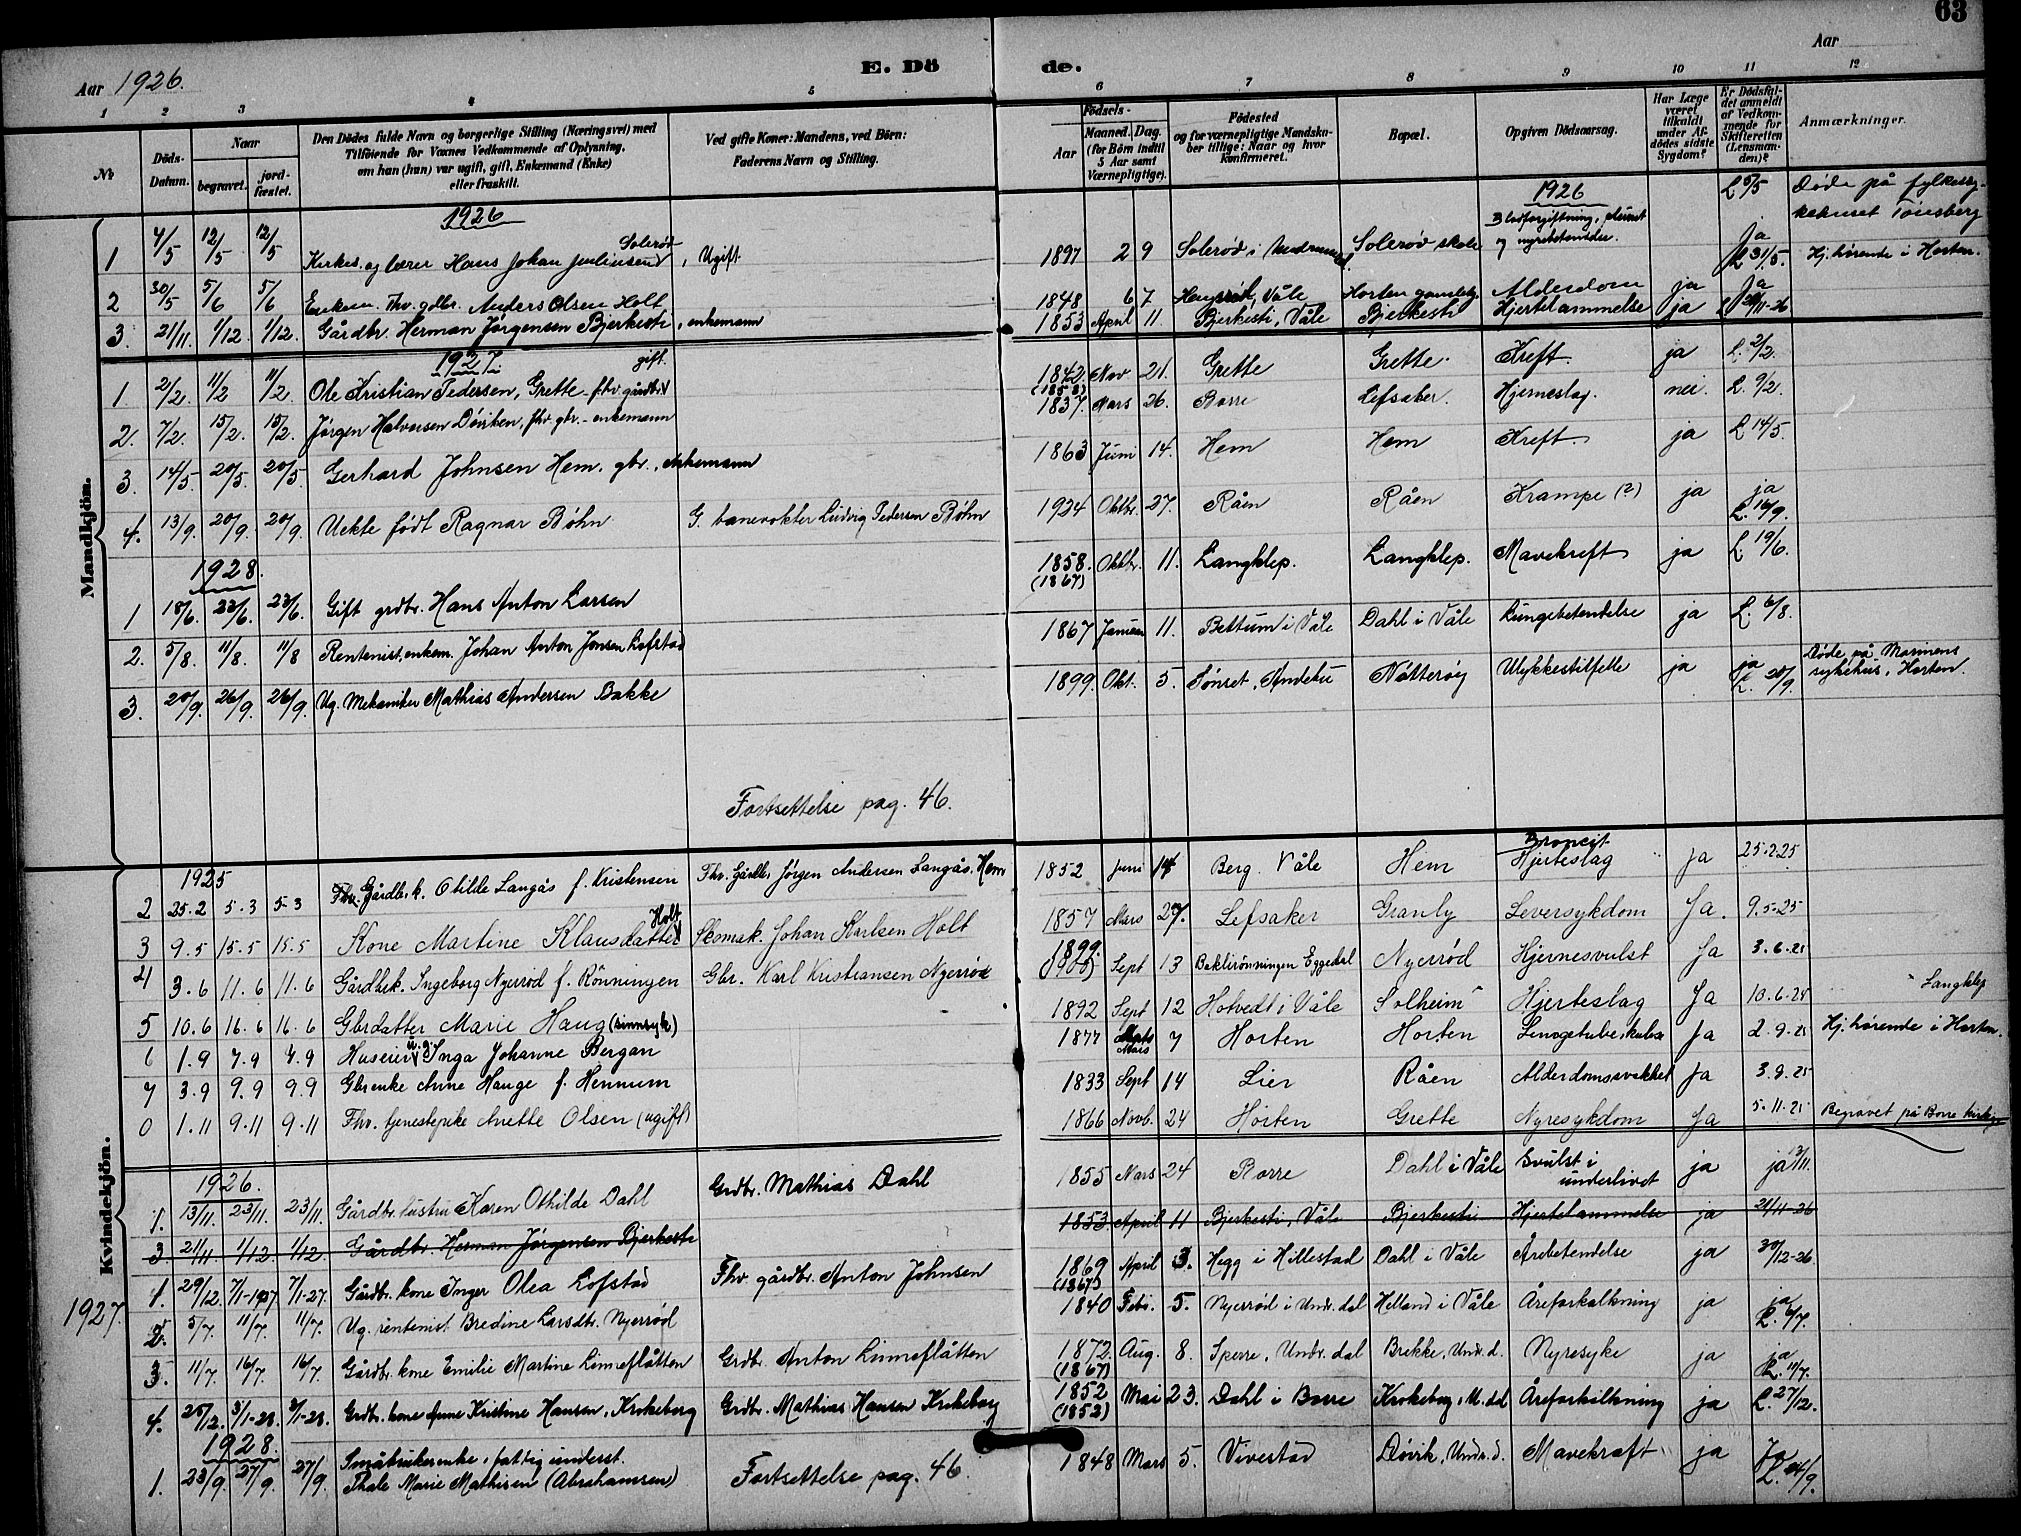 63
Aar 1926.
E. Dö de.
Aar
1 2 3 4 5 6 7 8 9 10 11 12
№
Döds-Datum.
Naar
begravet.
jord-fæstet.
Den Dödes fulde Navn og borgerlige Stilling (Næringsvei) med
Tilföiende for Voxnes Vedkommende af Oplysning,
om han (hun) var ugift, gift, Enkemand (Enke)
eller fraskilt.
Ved gifte Koner: Mandens, ved Börn:
Faderens Navn og Stilling.
Födsels-
Aar
Maaned. Dag.
(for Börn indtil 5 Aar samt Værnepligtige).
Födested
og for værnepligtige Mandskaber tillige: Naar og hvor Konfirmeret.
Bopæl.
Opgiven Dödsaarsag.
Har Læge været tilkaldt under Afdödes sidste Sygdom?
Er Dödsfaldet anmeldt af Vedkommende for Skifteretten (Lensmanden)?
Anmærkninger.
Mandkjön.
1926
1 4/5 12/5 12/5 Kirkes. og lærer Hans Johan Juliussen Solerød, Ugift 1897 2 9 Solerød i Solerøv skole Blodforgiftning, og nyrebetendelse. ja L 5/5 Døde på fylkessykehuset Tønsberg
2 30/5 5/6 5/6 Enkem. Fhv. gdbr. Anders Olsen Holt 1848 6 7 Våle Horten gamleh. Alderdom ja Ja L 31/5. Hj.hørende i Horten.
3. 21/11. 1/12. 1/12. Gårdbr. Herman Jørgensen Bjerkesti, enkemann 1853 April 11 Bjerkesti, Våle Bjerkesti Hjertelammelse ja Ja 21/11-26
1927
1. 2/2. 11/2 11/2. Ole Kristian Pedersen, Grette - fhv. gårdbr. gift. 1842 Nov 21. Grette Grette. Kreft. ja L. 2/2.
2. 7/2. 15/2. 15/2. Jørgen Halvorsen Döviken, fhv. gbr. - enkemann (1858) 1837. Mars 26. Borre Lefsaker. Hjerneslag. nei. L. 9/2.
3. 14/5. 20/5. 20/5. Gerhard Johnsen Hem. gbr., enkemann 1863 Juni 14. Hem Hem Kreft ja L 14/5.
4. 13/9. 20/9. 20/9. Uekte født Ragnar Bøhn G. banevokter Ludvig Pedersen Bøhn 1924 Oktbr. 27. Råen Råen Krampe (?) ja ja L. 16/9.
1928.
1 18/6. 23/6. 23/6. Gift grdbr. Hans Anton Larsen 1858. (1867) Oktbr. 11. Langklep. Langklep. Mavekreft ja L. 19/6.
2. 5/8. 11/8. 11/8 Rentenist, enkem. Johan Anton Jonsen Lofstad 1867 Januar 11. Bettum i Våle Dahl i Våle Lungebetendelse ja L. 6/8.
3. 20/9. 26/9. 26/9. Ug. Mekaniker Mathias Andersen Bakke 1899. Okt. 5. Sønset, Andebu Nøtterøy Ulykkestilfelle ja ja L. 20/9. Døde på Marinens sykehus, Horten.
Fortsettelse pag. 46.
Kvindekjön.
1925
2 25.2 5.3 5-3 Fhv. Gårdbr. k. Otilde Langås f. Kristensen Fhv. Gårdbr. Jørgen Andersen Langås, Hem 1852 Juni 14 Berg. Våle Hem Hjerteslag Ja 25.2.25
3 9.5 15.5 15.5 Kone Martine Klausdatter Holt Skomak. Johan Karlsen Holt 1857 Mars 27. Lefsaker Granly Leversykdom Ja. 9.5-25
4 3.6 11.6 11.6 Gårdbrk. Ingeborg Nyerrød f. Rönningen Gbr. Karl Kristiansen Nyerrød 1899 (1900) Sept 13 Baklirønningen Eggedal Nyerrød Hjernesvulst Ja 3.6.25
5 10.6 16.6 16.6 Gbrdatter Marie Haug (sinnsyk) 1892 Sept 12 Hotvedt i Våle Solheim Hjerteslag Ja 10.6.25 Langklep
6 1.9 7.9 7.9 Huseier u.g. Inga Johanne Bergan 1877 Mars 7 Horten Horten Ja 2.9.25 Hj.hørende i Horten.
7 3.9 9.9 9.9 Gbrenke Anne Hauge f. Hennum 1833 Sept 14 Lier Råen Alderdomssvakhet Ja 3.9.25
1.11 9.11 9.11 Fhv. tjenestepike Anette Olsen (ugift) 1866 Novb. 24 Horten Grette Nyresykdom Ja 5.11.25 Begravet på Borre kirkeg.
1926.
1. 13/11. 23/11. 23/11. Gårdbr. hustru Karen Othilde Dahl Grdbr. Mathias Dahl 1855 Mars 24 Borre Dahl i Våle Svulst i underlivet ja ja 13/11.
3 21/11 1/12. 1/12. Gårdbr. Herman Jørgensen Bjerkesti 1853 April 11 Bjerkesti, Våle Bjerkesti Hjertelammelse ja 21/11-26
1927.
1. 29/12. 7/1-1927 7/1-27. Gårdbr. kone Inger Olea Lofstad Fhv gårdbr. Anton Johnsen 1869 (1867) April 3. Hegg i Hillestad Dahl i Våle Årebetendelse ja 30/12-26
2. 5/7. 11/7. 11/7. Ug. rentenist. Bredine Larsdtr. Nyerrød 1840 Febr. 5. Nyerrød i Undr.dal Helland i Våle Åreforkalkning ja ja L. 6/7.
3. 11/7. 16/7. 16/7. Gårdbr. kone Emilie Martine Linneflåtten Grdbr. Anton Linneflåtten 1872 (1867) Aug. 8. Sperre, Undr.dal Brekke, Undr.d. Nyresyke ja ja L. 11/7.
4. 25/12. 3/1-28. 3/1-28. Grdbr. kone Anne Kristine Hansen, Krokeborg Grdbr. Mathias Hansen Krokeborg 1852 (1852) Mai 23. Dahl i Borre Krokeborg, Åreforkalkning ja L. 27/12.
1928.
1. 23/9. 27/9. 27/9. Småbrukerenke, fattigunderst. Thale Marie Mathisen (Abrahamsen) 1848 Mars 5. Vivestad Døvik, Undr.d. Mavekræft ja Ja L. 24/9.
Fortsettelse pag. 46.